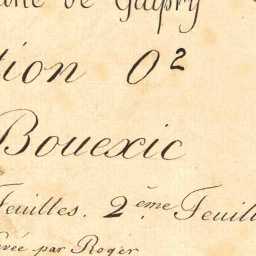 de Guipry
tion O²
Bouexic
Feuilles. 2ème Feuill
evée par Roger